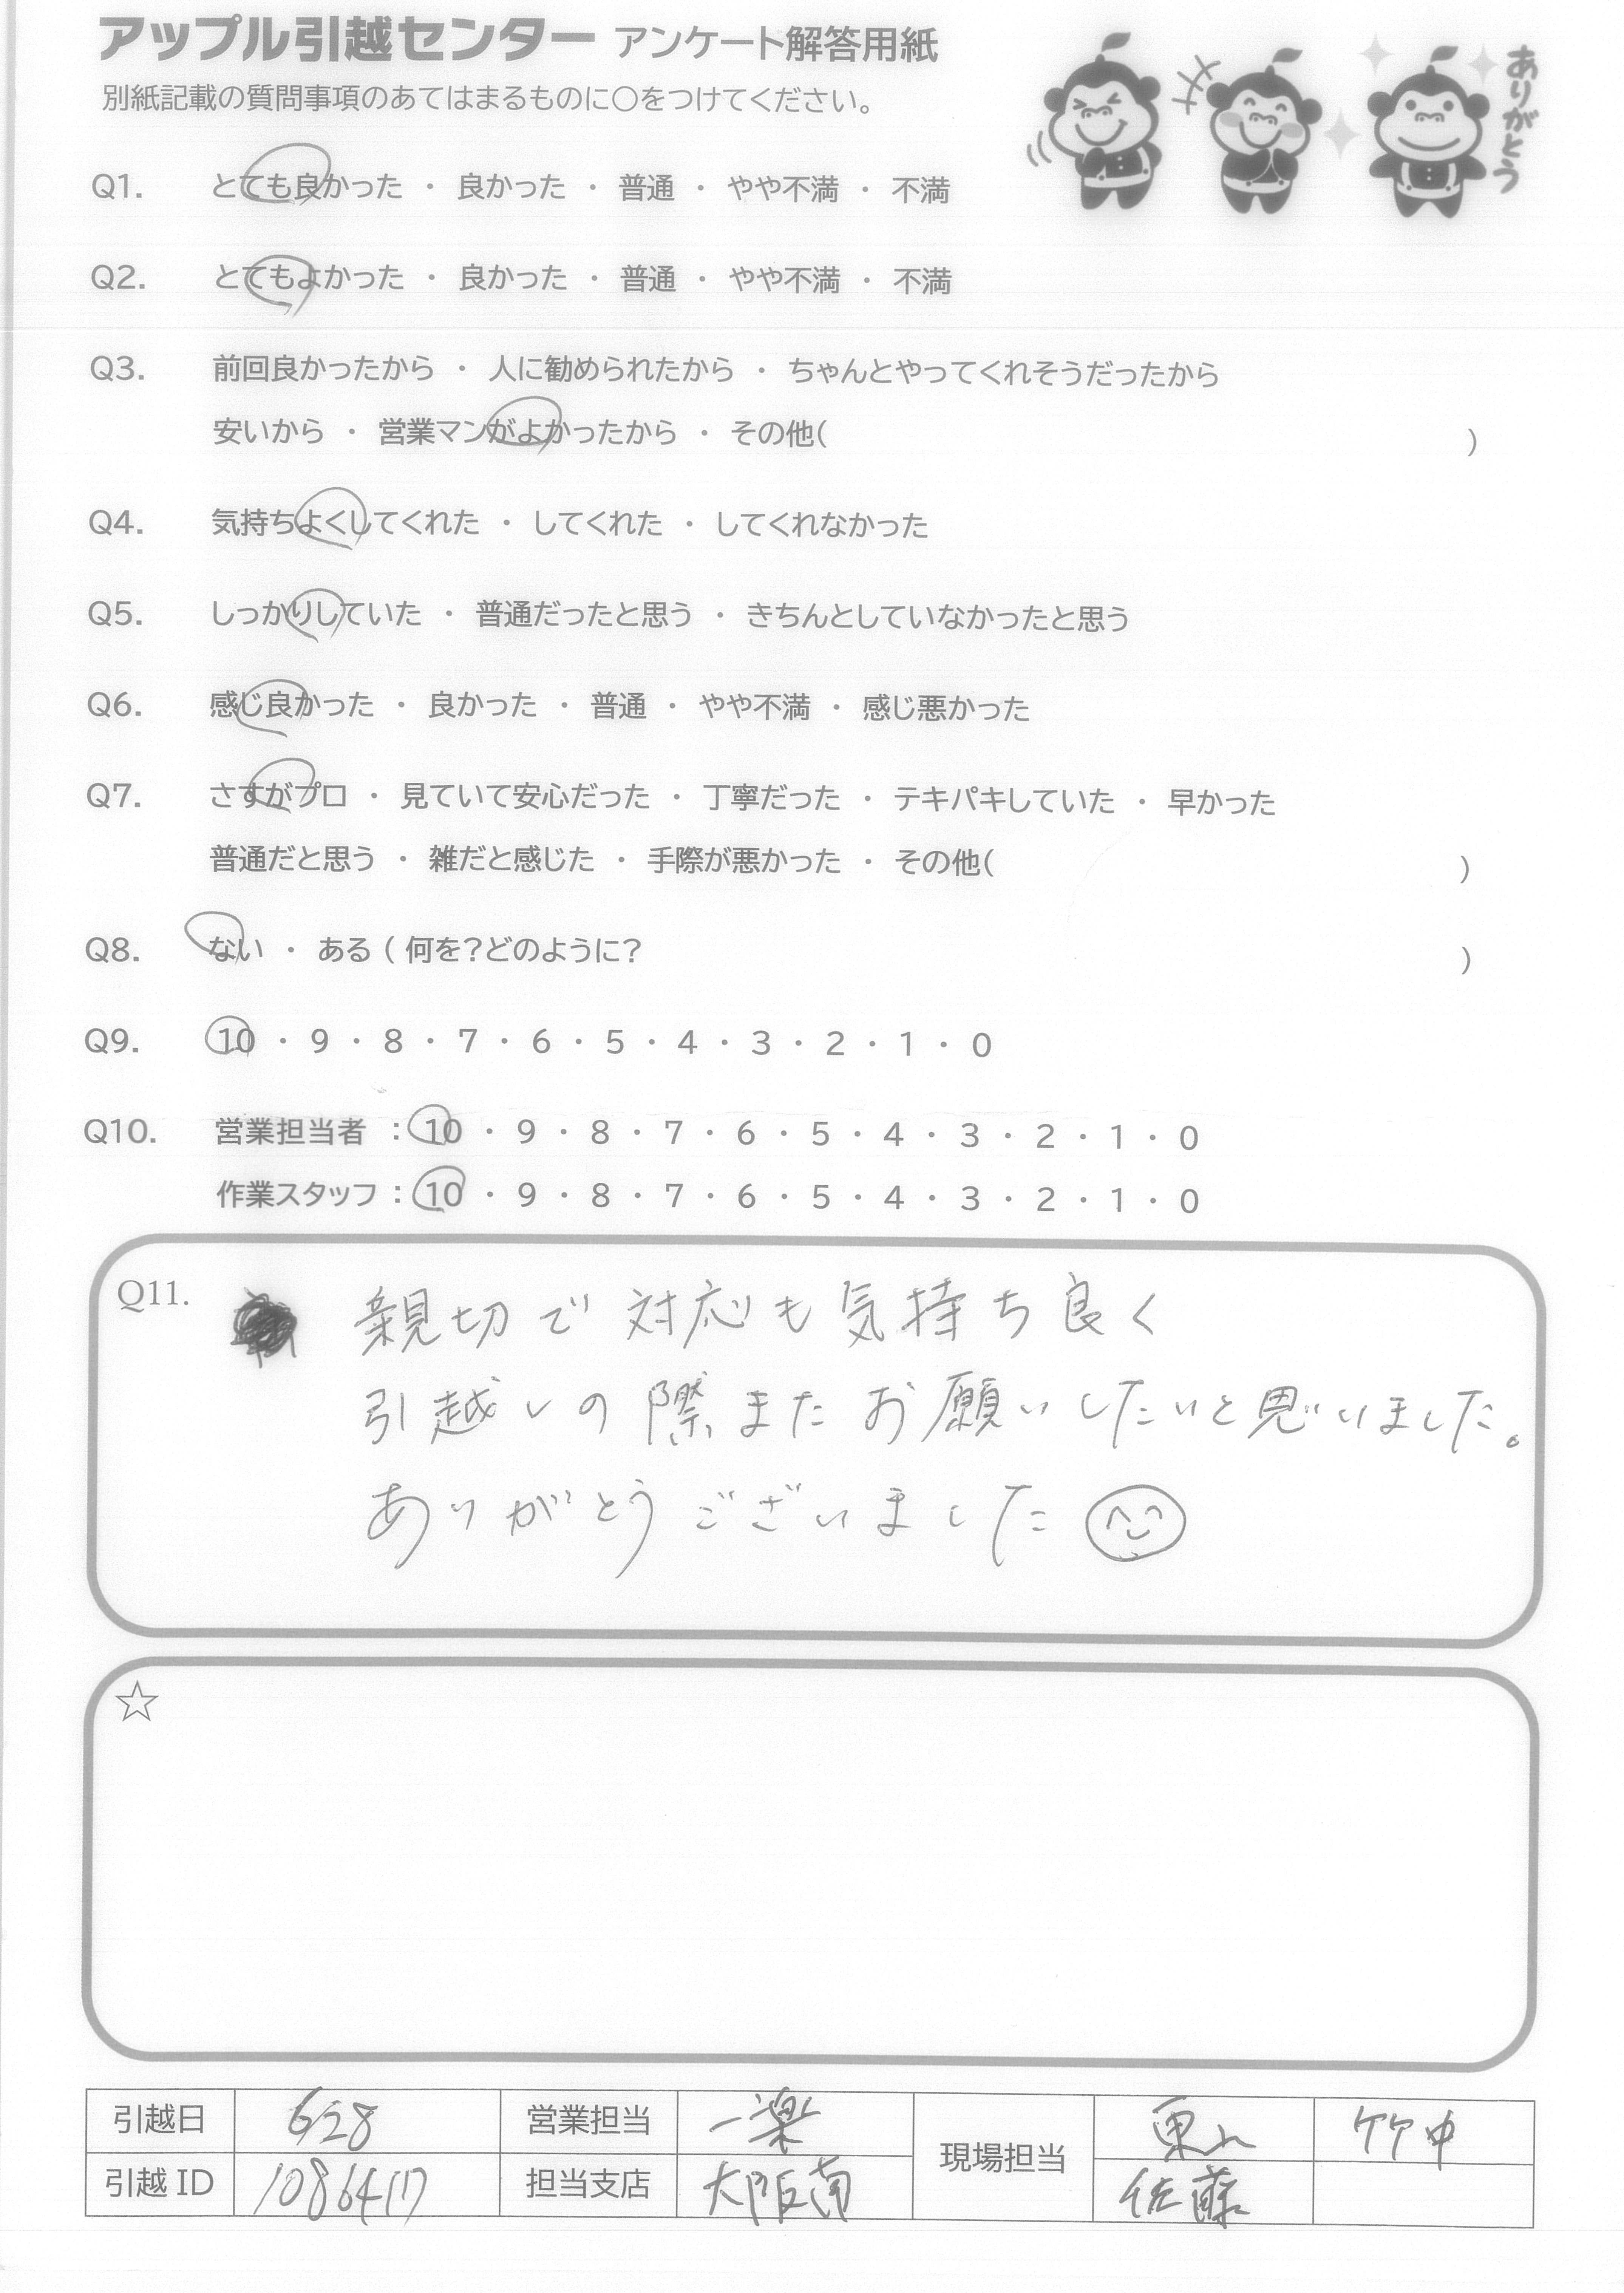 アップル引越センター アンケート解答用紙
別紙記載の質問事項のあてはまるものに〇をつけてください。
ありがとう
Q1. とても良かった ・ 良かった ・ 普通 ・ やや不満 ・ 不満
Q2. とてもよかった ・ 良かった ・ 普通 ・ やや不満 ・ 不満
Q3. 前回良かったから ・ 人に勧められたから ・ ちゃんとやってくれそうだったから
安いから ・ 営業マンがよかったから ・ その他( )
Q4. 気持ちよくしてくれた ・ してくれた ・ してくれなかった
Q5. しっかりしていた ・ 普通だったと思う ・ きちんとしていなかったと思う
Q6. 感じ良かった ・ 良かった ・ 普通 ・ やや不満 ・ 感じ悪かった
Q7. さすがプロ ・ 見ていて安心だった ・ 丁寧だった ・ テキパキしていた ・ 早かった
普通だと思う ・ 雑だと感じた ・ 手際が悪かった ・ その他( )
Q8. ない ・ ある ( 何を?どのように? )
Q9. 10 ・ 9 ・ 8 ・ 7 ・ 6 ・ 5 ・ 4 ・ 3 ・ 2 ・ 1 ・ 0
Q10. 営業担当者 : 10 ・ 9 ・ 8 ・ 7 ・ 6 ・ 5 ・ 4 ・ 3 ・ 2 ・ 1 ・ 0
作業スタッフ : 10 ・ 9 ・ 8 ・ 7 ・ 6 ・ 5 ・ 4 ・ 3 ・ 2 ・ 1 ・ 0
Q11. 親切で対応も気持ち良く
引越しの際またお願いしたいと思いました。
ありがとうございました
☆
引越日 628 営業担当 一楽 現場担当 竹中
引越 ID 担当支店 大阪南 佐藤